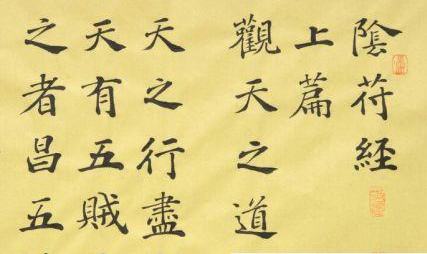 陰苻經
上篇
觀天之道
天之行盡
天有五賊
之者昌五